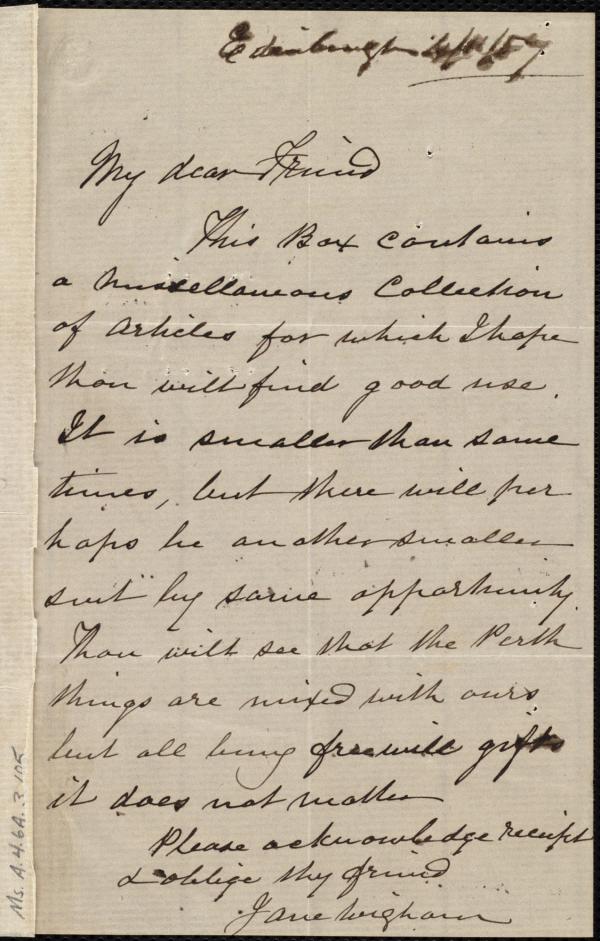 Edinburgh 4/11/57
My dear Friend
This Box contains
a miscellaneous Collection
of articles for which I hope
thou wilt find good use.
It is smaller than some
times, but there will per
haps be another smaller
sent by same opportunity.
Thou wilt see that the Perth
things are mixed with ours
but all being freewill gifts
it does not matter
Please acknowledge receipt
& oblige thy friend
Jane Wigham
Ms. A.4.6A.3.105